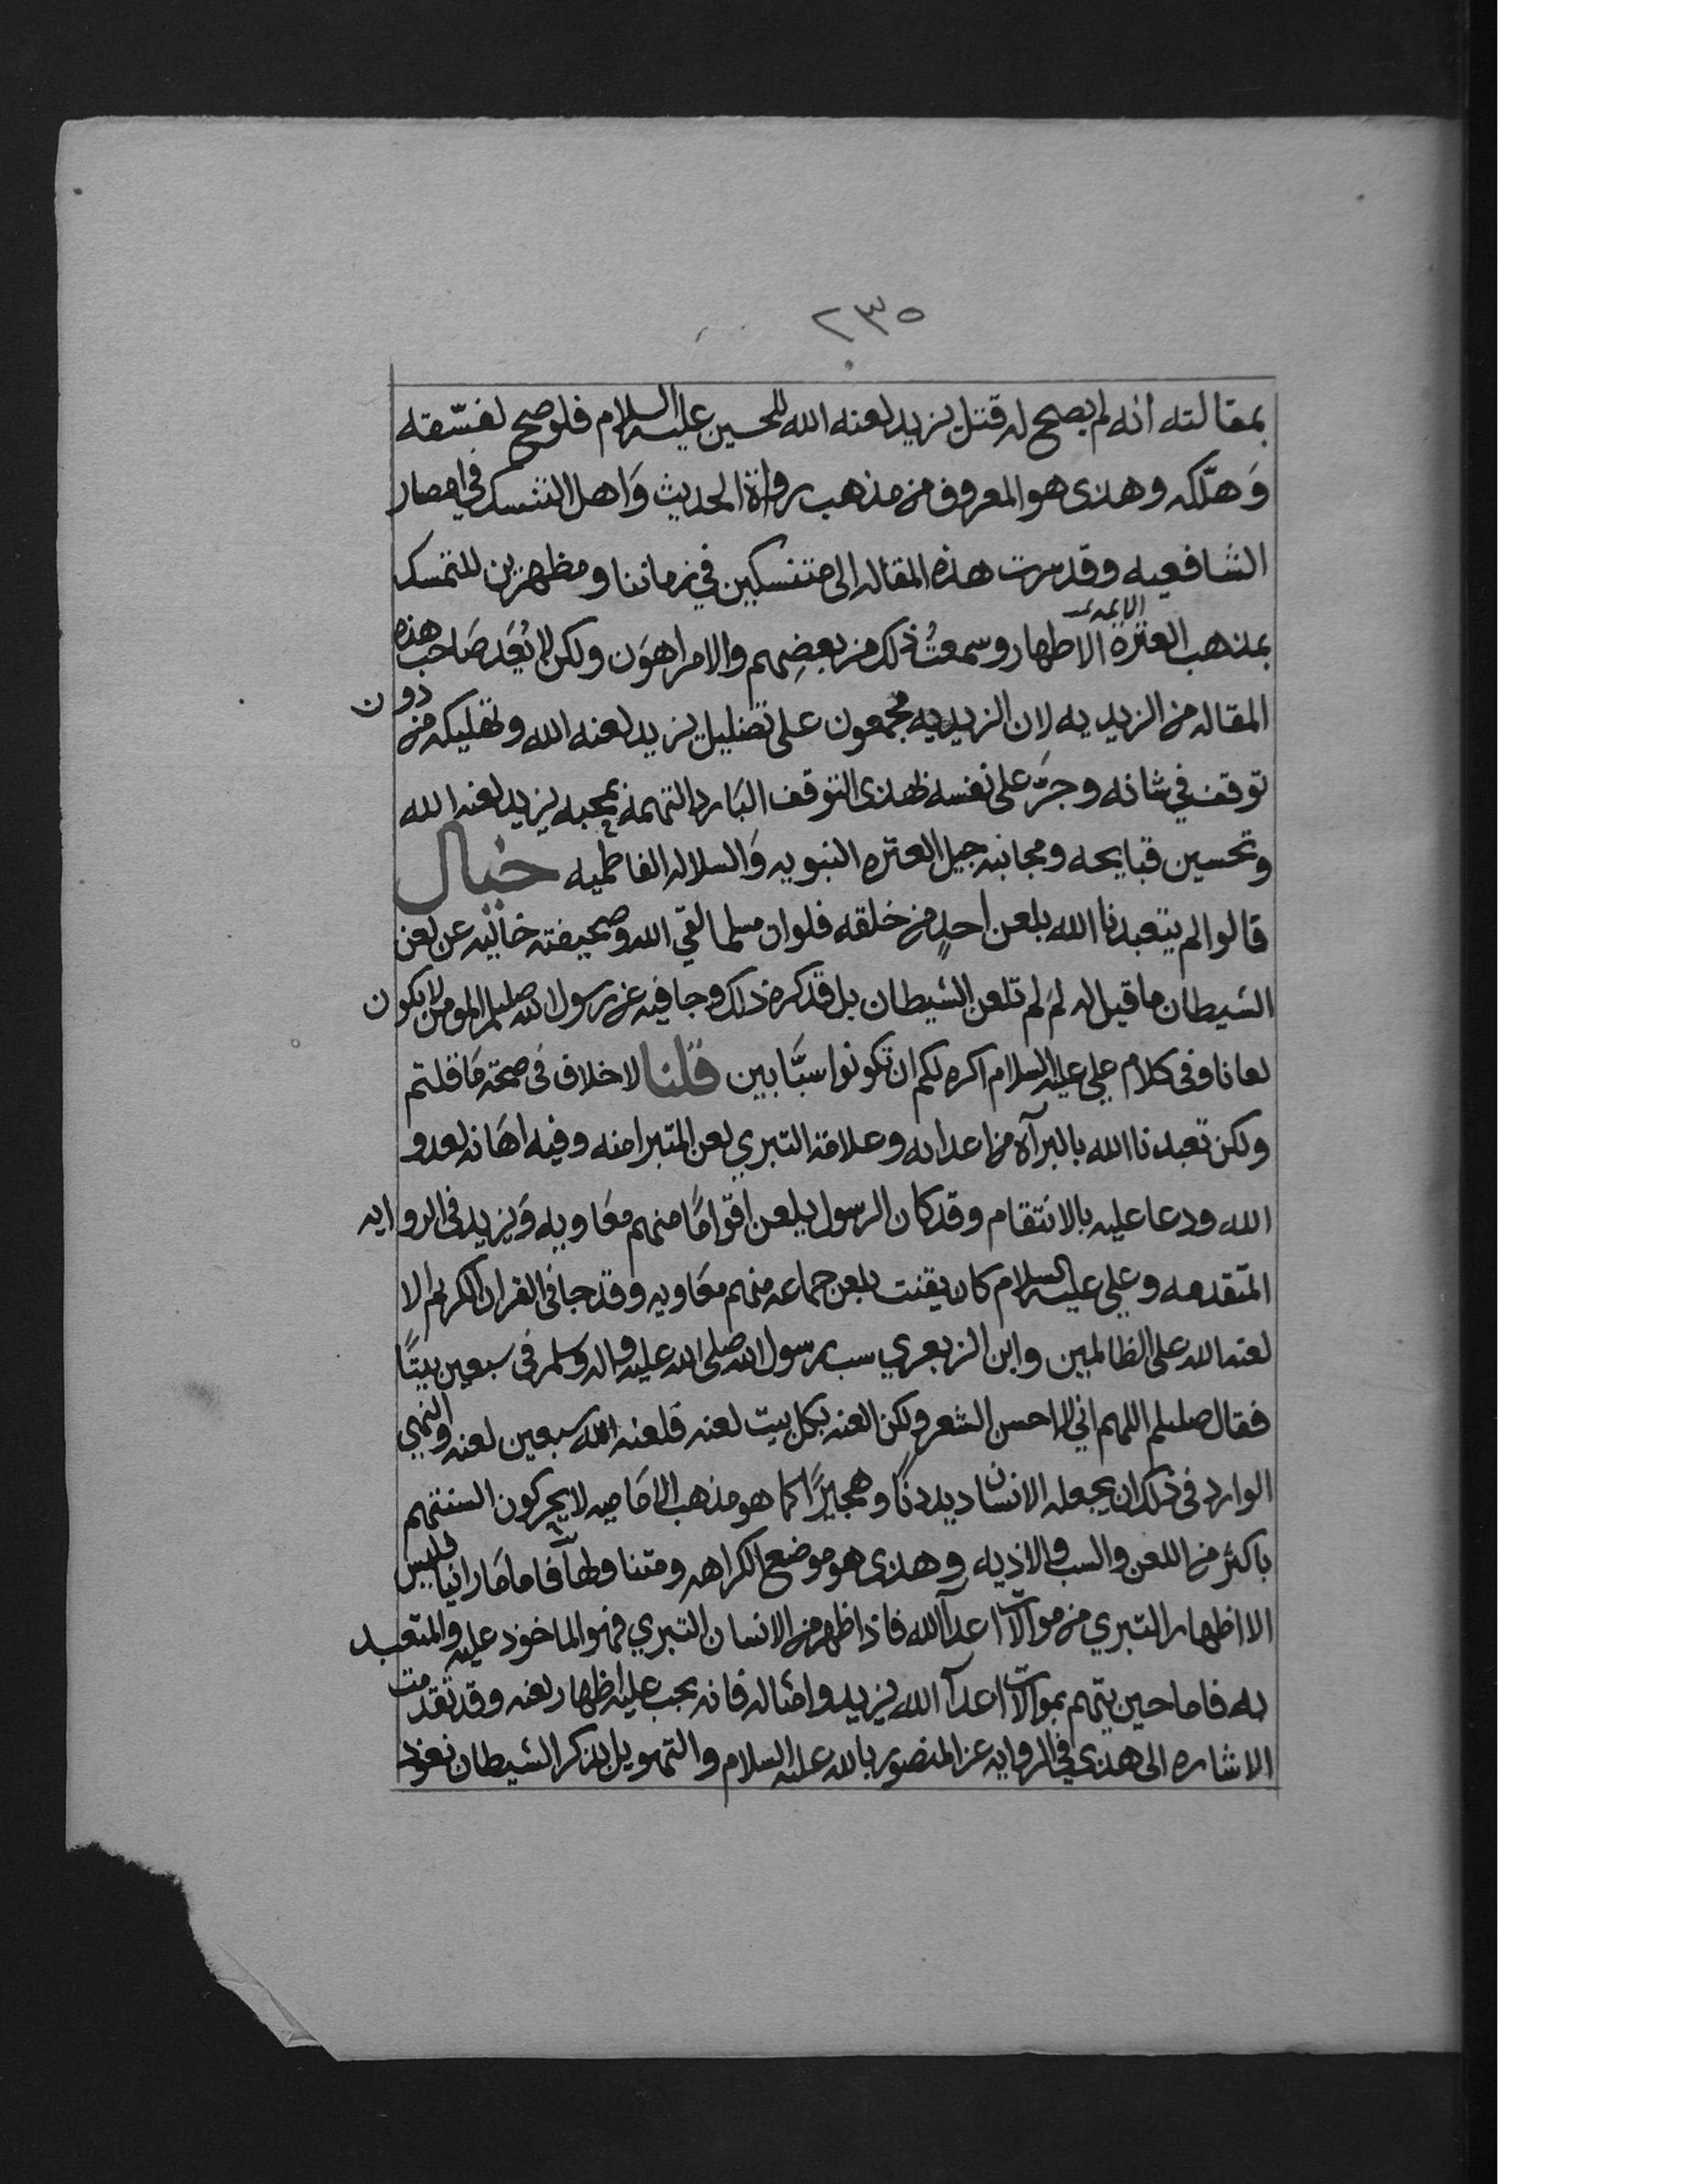 ٢٣٥
بمقالته انه لم يصح له قتل يزيد لعنه الله للحسين عليه السلام فلو صح لفسّقه
وَهلّكه وهذى هو المعروف من مذهب رواة الحديث وَاهل التنسك في امصار
الشافعيه وقد سرت هذه المقاله الى متنسكين في زماننا ومظهرين للتمسك
بمذهب العترة الائمه الاطهار وسمعتُ ذلك من بعضِهم والامر اهوَن ولكن لا نُعَد صَاحب هذه
المقاله من الزيديه لان الزيديه مجمعون على تضليل يزيد لعنه الله وتهليكه من دون
توقف في شانه وجَرّ على نفسه بهذى التوقف البَارد التهمة بمحبه يزيد لعنه الله
وتحسين قبايحه ومجانبه جيل العتره النبويه وَالسلاله الفاطميه خيال
قالوا لم يتعبدنا الله بلعن احدٍ من خلقه فلو ان مسلما لقي الله وصحيفته خاليه عن لعن
الشيطان ما قيل له لمَ لم تلعن الشيطان بل قد كره ذلك وجا فيه عن رسول الله صلىلم المومن لا يكون
لعانا وفى كلام علي عليه السلام اكره لكم ان تكونوا سبّابين قلنا لا خلاف فى صحة مَا قلتم
ولكن تعبدنا الله بالبرآه من اعدايه وعلامة التبري لعن المتبرا منه وفيه اهَانه لعدو
الله ودعا عليه بالانتقام وقد كان الرسول يلعن اقوامًا منهم معَاويه وَيزيد فى الروايه
المتقدمه وعلي عليه السلام كان يقنت بلعن جماعه منهم معَاويه وقد جا فى القران الكريم الا
لعنة الله على الظالمين وابن الزبعري سب رسول الله صلى الله عليه واله وسلم فى سبعين بيتًا
فقال صلىلم اللهم اني لا احسن الشعر ولكن العنه بكل بيت لعنه فلعنه الله سبعين لعنه والنهي
الوارد فى ذلك ان يجعله الانسان ديدنًا وهجيرًا كما هو مذهب الامَاميه لا يحركون السنتهم
باكثر من اللعن والسب والاذيه وهذى هو موضع الكراهه فاما مَا راينا فليس
الا اظهار التبري من موالات اعدآ الله فاذا ظهر من الانسان التبري فهو الماخوذ عليه والمتعبد
به فاما حين يتهم بموالات اعدآ الله يزيد وامثاله فانه يجب عليه اظهار لعنه وقد تقدمت
الاشاره الى هذى في الروايه عن المنصور بالله عليه السلام والتهويل بذكر الشيطان نعوذ